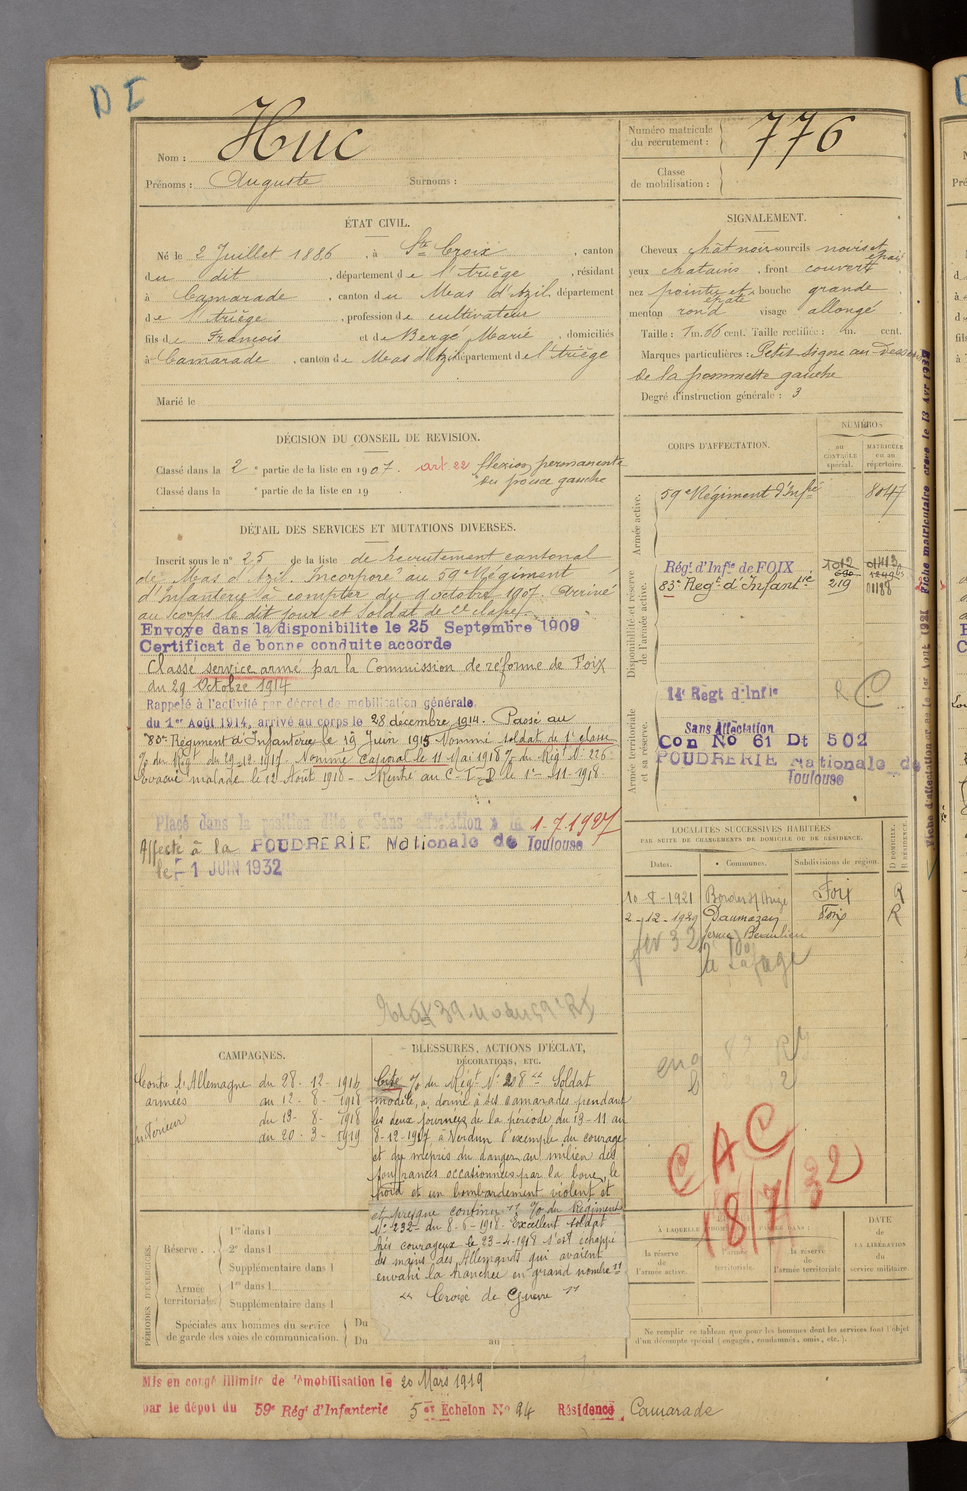 D I
Nom : Huc
Prénoms : Auguste Surnoms :
Numéro matricule du recrutement : 776
Classe de mobilisation :
ÉTAT CIVIL.
Né le 2 Juillet 1886, à Ste Croix, canton
du dit, département de l'Ariège, résidant
à Camarade, canton du Mas d'Azil, département
de l'Ariège, profession de cultivateur
fils de François et de Bergé Marie, domiciliés
à Camarade, canton de Mas d'Azil département de l'Ariège
Marié le
SIGNALEMENT.
Cheveux chât noir sourcils noirs et épais
yeux chatains, front couvert
nez pointu et épaté bouche grande
menton rond visage allongé
Taille : 1 m. 66 cent. Taille rectifiée : m. cent.
Marques particulières : Petit signe au-dessous
de la pommette gauche
Degré d'instruction générale : 3
DÉCISION DU CONSEIL DE REVISION.
Classé dans la 2e partie de la liste en 1907. art. 22 flexion permanente
Classé dans la e partie de la liste en 19 . du pouce gauche
DÉTAIL DES SERVICES ET MUTATIONS DIVERSES.
Inscrit sous le n° 25 de la liste de recrutement cantonal
de Mas d'Azil. Incorporé au 59e Régiment
d'Infanterie à compter du 9 octobre 1907. Arrivé
au corps le dit jour et soldat de 2e classe.
Envoye dans la disponibilite le 25 Septembre 1909
Certificat de bonne conduite accorde
Classé service armé par la Commission de réforme de Foix
du 29 Octobre 1914
Rappelé à l'activité par décret de mobilisation générale
du 1er Août 1914, arrivé au corps le 28 décembre 1914. Passé au
83e Régiment d'Infanterie le 19 Juin 1915 Nommé soldat de 1e classe
% du Régt du 29-12-1917. Nommé Caporal le 11 Mai 1918 % du Régt N° 226
Evacué malade le 12 Août 1918 - Rentré au C-I-D le 1er-11-1918.
Placé dans la position dite « Sans affectation » le 1-7-1927
Affecté à la POUDRERIE Nationale de Toulouse
le 1 JUIN 1932
CORPS D'AFFECTATION.
NUMÉROS
au CONTRÔLE spécial.
MATRICULE ou au répertoire.
Armée active.
59e Régiment d'Infie 8047
Disponibilité et réserve de l'armée active.
Régt d'Infie de FOIX 1012
83e Regt d'Infanterie 219 01188
Armée territoriale et sa réserve.
14e Regt d'Infie R C
Sans Affectation
Con No 61 Dt 502
POUDRERIE Nationale de
Toulouse
LOCALITÉS SUCCESSIVES HABITÉES
PAR SUITE DE CHANGEMENTS DE DOMICILE OU DE RÉSIDENCE.
Dates. Communes. Subdivisions de région. D DOMICILE. R RÉSIDENCE.
10-8-1921 Bordes s/ Arize Foix R
2-12-1929 Daumazan Foix R
ferme Beaulieu
fev 32
CAMPAGNES.
Contre l'Allemagne du 28-12-1914
armées au 12-8-1918
intérieur du 13-8-1918
au 20-3-1919
BLESSURES, ACTIONS D'ÉCLAT, DÉCORATIONS, ETC.
Cité % du Régt N° 208 "Soldat
modèle, a donné à ses camarades pendant
les deux journées de la période du 13-11 au
8-12-1917, à Verdun l'exemple du courage
et du mépris du danger au milieu des
souffrances occasionnées par la boue, le
froid et un bombardement violent et
et presque continu" % du Régiment
N° 232 du 8-6-1918 "Excellent soldat
très courageux le 23-4-1918 s'est échappé
des mains des Allemands qui avaient
envahi la tranchée en grand nombre"
"Croix de Guerre"
PÉRIODES D'EXERCICES.
Réserve . . 1re dans l
2e dans l
Supplémentaire dans l
Armée territoriale. 1re dans l
Supplémentaire dans l
Spéciales aux hommes du service de garde des voies de communication. Du
Du au
CAC
18/7/32
la réserve de l'armée active.
l'armée territoriale.
la réserve de l'armée territoriale.
DATE DE LA LIBÉRATION du service militaire.
Ne remplir ce tableau que pour les hommes dont les services font l'objet
d'un décompte spécial (engagés, condamnés, omis, etc.).
Mis en congé illimité de démobilisation le 20 Mars 1919
par le dépôt du 59e Régt d'Infanterie 5e Echelon No 94 Résidence Camarade